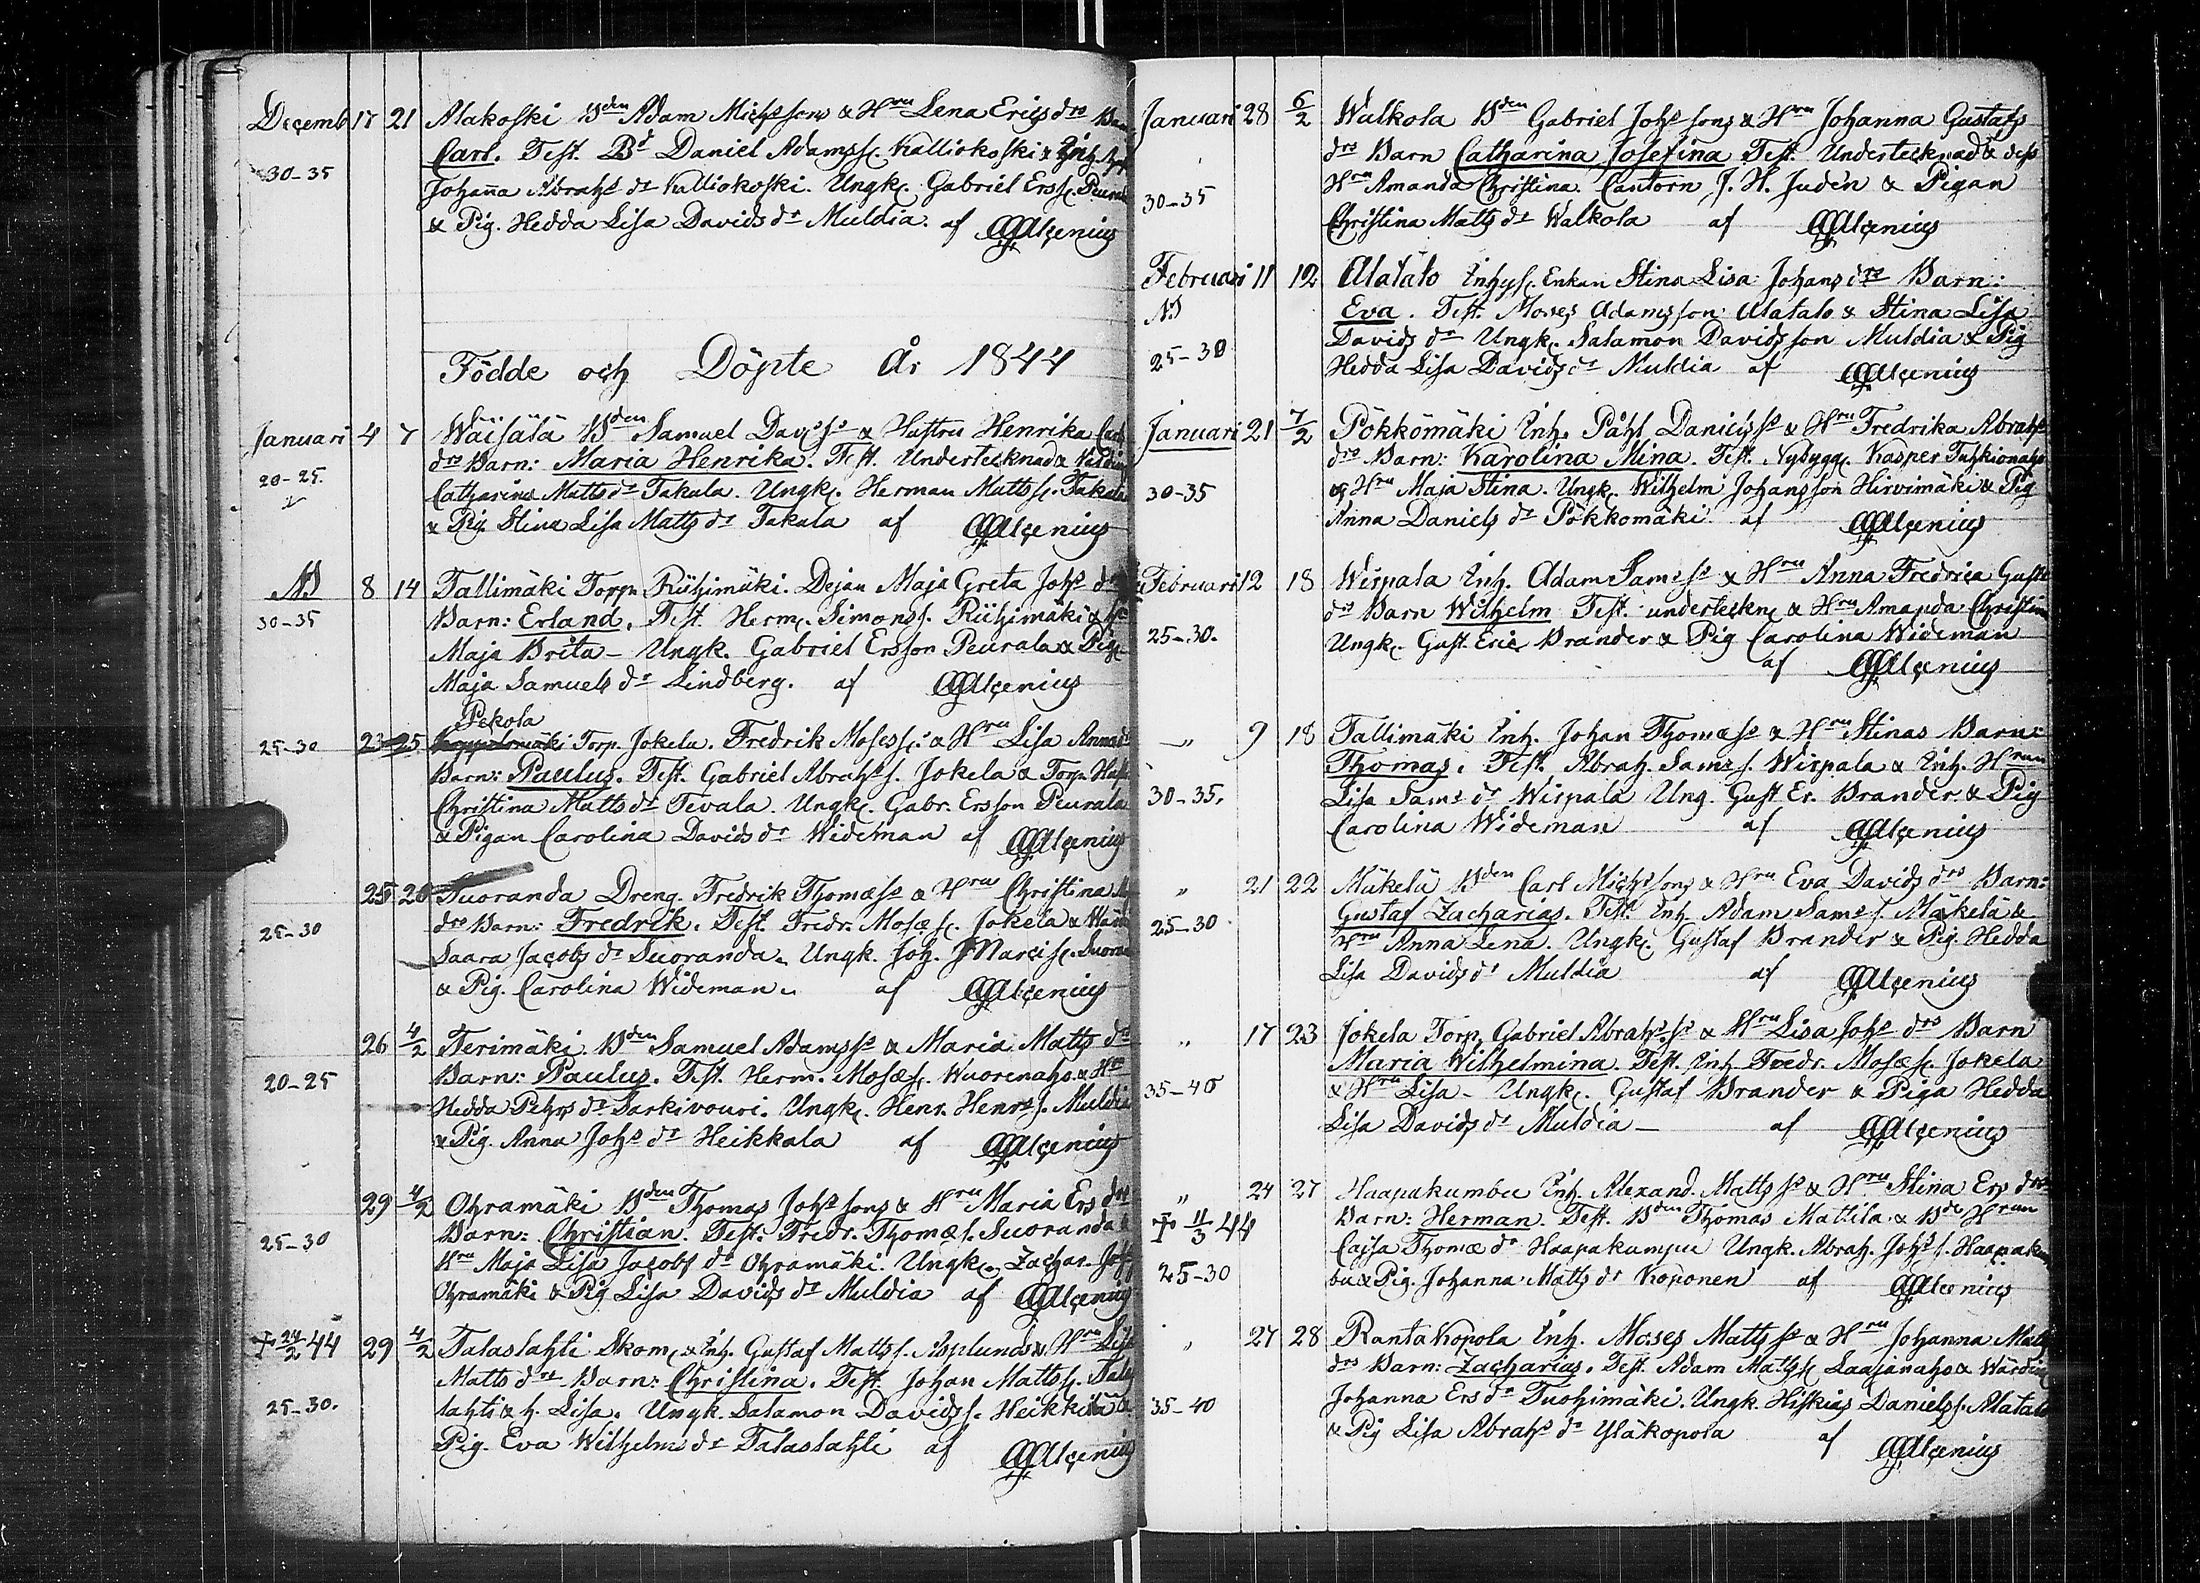 Decemb 17 21 Alakoski Bden Adam Michs sons & Hru Lena Erics drs Barn
Carl. Test. Bd Daniel Adamss. Kalliokoski & Inh.
30-35 Johanna Abrahs dr Kalliokoski. Ungk. Gabriel Erss. Peurala
& Pig. Hedda Lisa Davids dr Muldia. af Alcenius
Födde och Döpte År 1844
Januari 4 7 Wäisälä Bden Samuel Davds & Hustru Henrika
drs Barn: Maria Henrika. Test. Undertecknad & Värdin
20-25. Catharina Matts dr Takala. Ungk. Herman Mattss. Takala
& Pig. Stina Lisa Matts dr Takala af Alcenius
8 14 Tallimäki Torp. Riihimäki. Dejan Maja Greta Johs drs
30-35 Barn: Erland. Test. Herm. Simonss. Riihimäki &
Maja Brita - Ungk. Gabriel Ersson Peurala & Pig.
Maja Samuels dr Lindberg. af Alcenius
Pekola
25-30 23 25 Torp. Jokela. Fredrik Mosess. & Hru Lisa
Barn: Paulus. Test. Gabriel Abrahs s. Jokela & Torp.
Christina Matts dr Tevala. Ungk. Gabr. Ersson Peurala
& Pigan Carolina Davids dr Wideman af Alcenius
25 26 Suoranda Dreng. Fredrik Thomæ & Hru Christina
25-30 drs Barn: Fredrik. Test. Fredr. Mosæ s. Jokela &
Saara Jacobs dr Suoranda. Ungk. Joh. Suoran
& Pig. Carolina Wideman. af Alcenius
26 4/2 Terimäki. Bden Samuel Adams & Maria Matts drs
20-25 Barn: Paulus. Test. Herm. Mosæ s. Wuorenaho & Hru
Hedda Pehrs dr Sarkivouri. Ungk. Henr. Henrs s. Muldia
& Pig. Anna Johs dr Heikkala af Alcenius
29 4/2 Ohramäki Bden Thomas Johs sons & Hru Maria Ers drs
25-30 Barn: Christian. Test: Fredr. Thomæ s. Suoranda &
Hru Maja Lisa Jacobs dr Ohramäki. Ungk. Zachar. Johs
Ohramäki & Pig Lisa Davids dr Muldia af Alcenius
† 24/2 44 29 4/2 Talaslahti Skom. & Inh. Gustaf Matts s. Asplunds & Hru Lisa
Matts drs Barn: Christina. Test. Johan Mattss. Talas
25-30. lahti & h. Lisa. Ungk. Salamon Davids s. Heikkilä &
Pig. Eva Wilhelms dr Talaslahti af Alcenius
Januari 28 6/2 Walkola Bden Gabriel Johs sons & Hru Johanna Gustafs
drs Barn Catharina Josefina Test. Undertecknad & dess
30-35 Hru Amanda Christina. Cantorn J. H. Judén & Pigan
Christina Matts dr Walkola af Alcenius
Februari 11 12 Alatalo Inhys. Enkan Stina Lisa Johans drs Barn:
Eva. Test. Moses Adamsson Alatalo & Stina Lisa
Davids dr Ungk. Salamon Davidsson Muldia & Pig
25-30 Hedda Lisa Davids dr Muldia af Alcenius
Januari 21 7/2 Pökkömäki Inh. Påhl Daniels & Hru Fredrika Abrahs
drs Barn: Karolina Mina. Test. Nybygg. Kasper Tuhkionaho
30-35 & Hru Maja Stina. Ungk. Wilhelm Johansson Hirvimäki & Pig
Anna Daniels dr Pökkomäki af Alcenius
Februari 12 18 Wirpala Inh. Adam Sams & Hru Anna Fredrica Gusts
drs Barn Wilhelm Test. underteckn. & Hru Amanda Christina
25-30. Ungk. Gust. Eric Brander & Pig Carolina Wideman
af Alcenius
„ 9 18 Tallimäki Inh. Johan Thomæ & Hru Stinas Barn:
Thomas. Test. Abrah. Sams s. Wirpala & Inh. Hrun
30-35. Lisa Sams dr Wirpala Ung. Gust Er. Brander & Pig
Carolina Wideman af Alcenius
„ 21 22 Mäkelä Bden Carl Michs sons & Hru Eva Davids drs Barn:
25-30 Gustaf Zacharias. Test. Inh Adam Sams s. Mäkelä &
Hru Anna Lena. Ungk. Gustaf Brander & Pig. Hedda
Lisa Davids dr Muldia af Alcenius
„ 17 23 Jokela Torp. Gabriel Abrahs & Hru Lisa Johs drs Barn
Maria Wilhelmina. Test. Inh Fredr. Mosæ s. Jokela
35-40 & Hru Lisa - Ungk. Gustaf Brander & Piga Hedda
Lisa Davids dr Muldia - af Alcenius
„ 24 27 Haapakumbu Inh. Alexand. Matts & Hru Stina Ers drs
† 11/3 44 Barn: Herman. Test. Bden Thomas Mattila & Bde Hrun
Cajsa Thomæ dr Haapakumpu Ungk. Abrah. Johs s. Haapakum
25-30 bu & Pig. Johanna Matts dr Koponen af Alcenius
„ 27 28 Rantakopola Inh. Moses Matts & Hru Johanna Matts
drs Barn: Zacharias. Test. Adam Matts s. Laajanaho & Värdin
35-40 Johanna Ers dr Tuohimäki. Ungk. Hiskias Daniels s. Alatalo
& Pig Lisa Abrahs dr Yläkopola af Alcenius